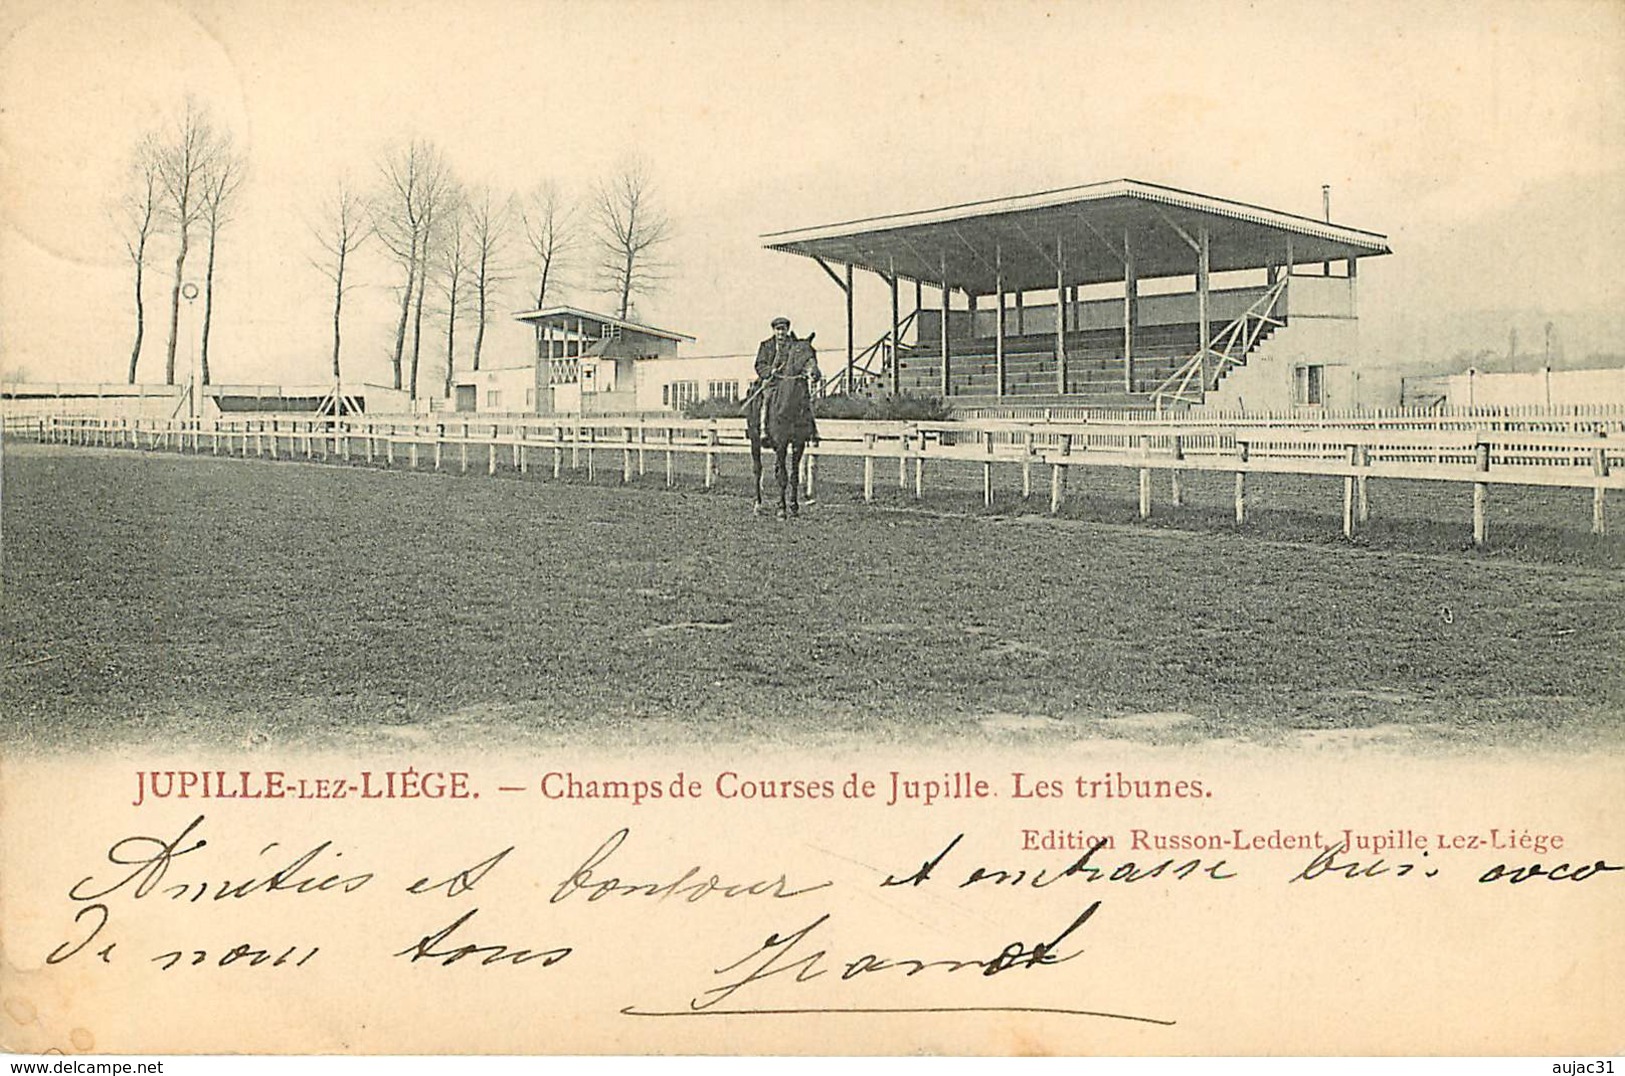 JUPILLE-LEZ-LIÉGE. — Champs de Courses de Jupille. Les tribunes.
Edition Russon-Ledent, Jupille Lez-Liége
Amitiés et bonjour et embrasse
De nous tous
www.delcampe.net
aujac31